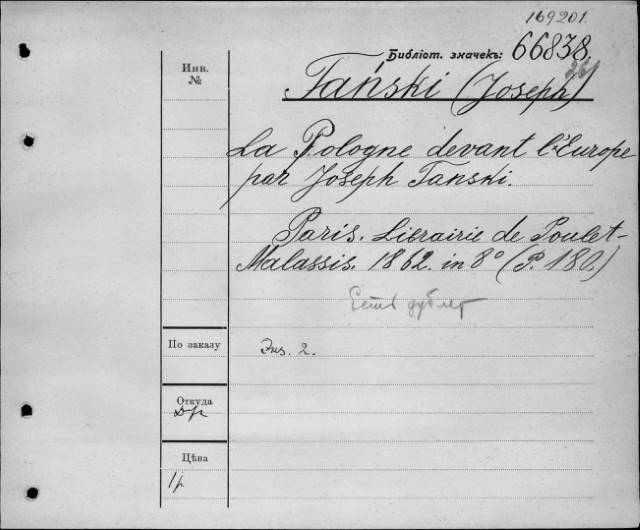 169201.
Библіот. значекъ: 66838.
Инв.
№
Tański (Joseph)
La Pologne devant l'Europe
par Joseph Tanski.
Paris. Librairie de Poulet-
Malassis. 1862. in 8° (P. 180.)
Есть дублет
По заказу
Экз. 2.
Откуда
Др
Цѣна
1р